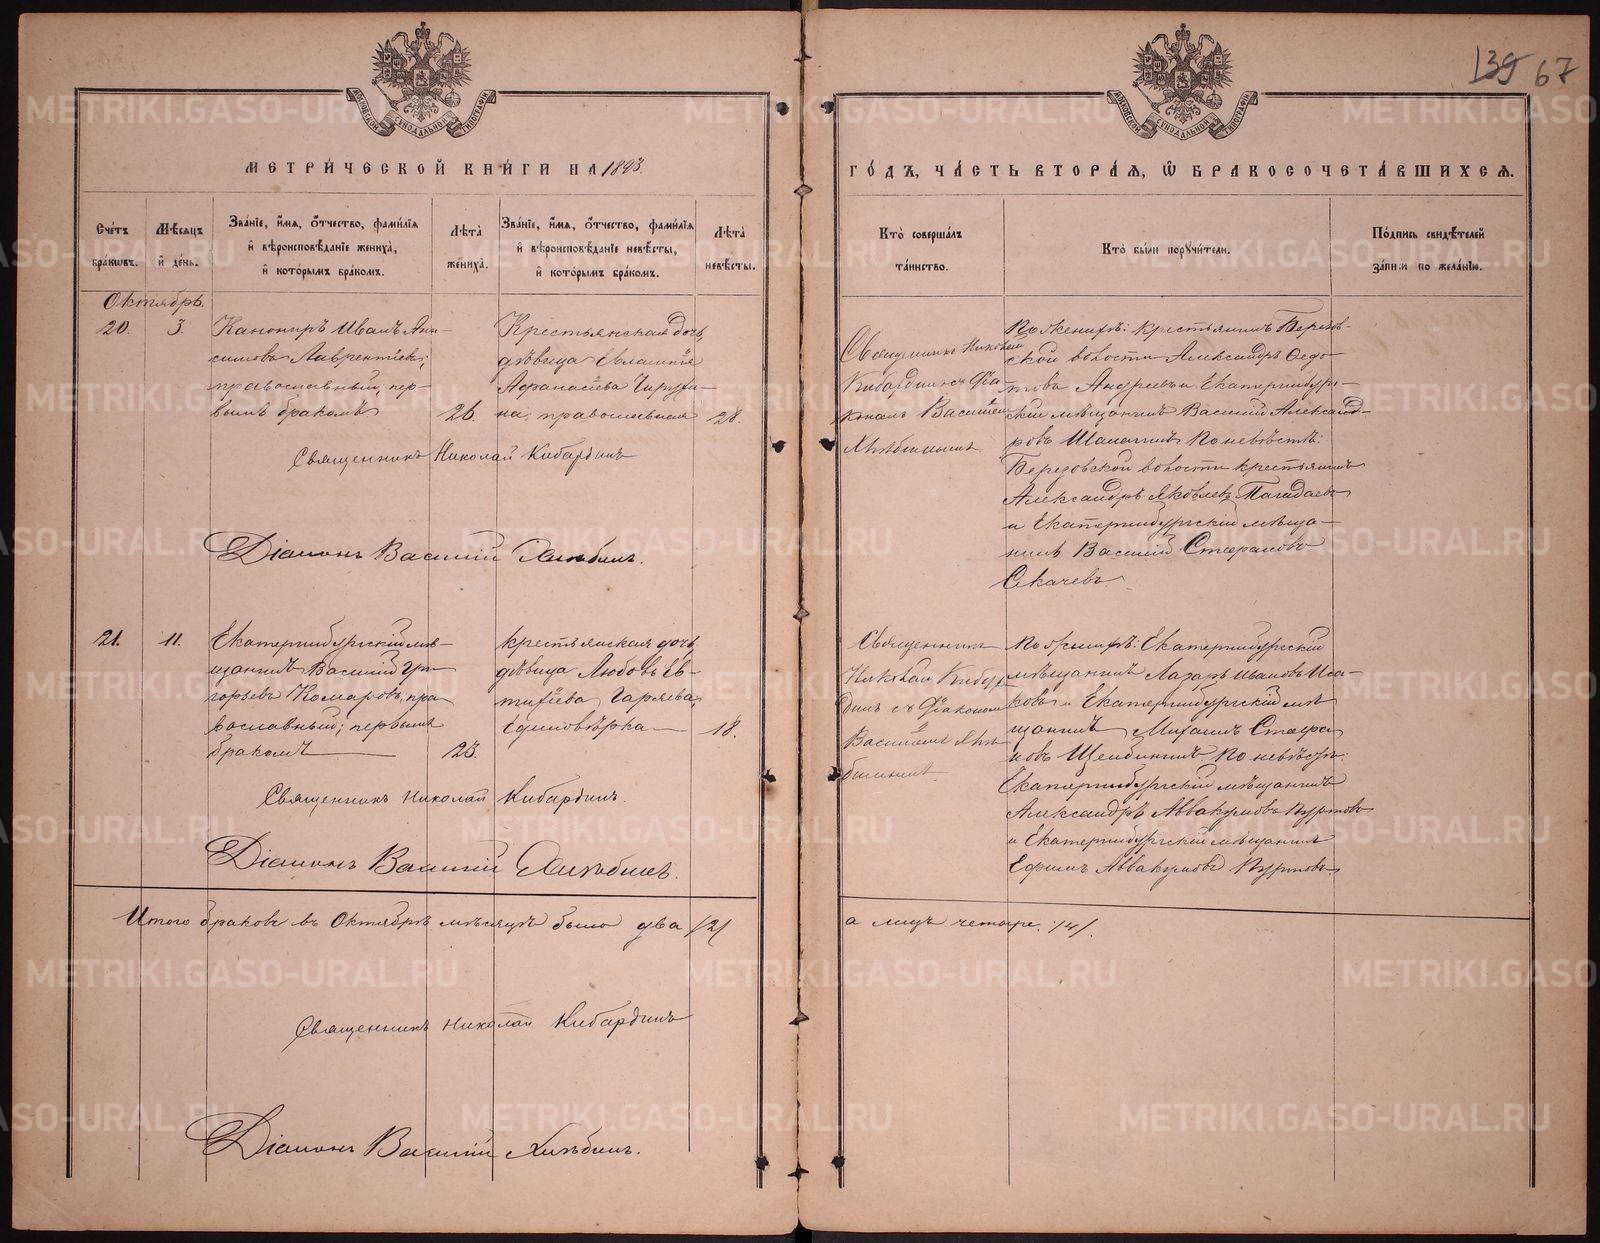 139 67
МЕТРИ́ЧЕСКОЙ КНИ́ГИ НА 1893.
ГО́ДЪ, ЧА́СТЬ ВТОРА́Я, Ѡ БРАКОСОЧЕТА́ВШИХСЯ.
Сче́тъ бра́кωвъ.
Мѣ́сяцъ и҆ де́нь.
Зва́нїе, и҆́мя, ѻ҆́тчество, фами́лїя
и҆ вѣроисповѣ́данїе жениха̀,
и҆ кото́рымъ бра́комъ.
Лѣ́та жениха̀.
Зва́нїе, и҆́мя, ѻ҆́тчество, фами́лїя
и҆ вѣроисповѣ́данїе невѣ́сты,
и҆ кото́рымъ бра́комъ.
Лѣ́та невѣ́сты.
Кто̀ соверша́лъ
та́инство.
Кто̀ бы́ли порꙋчи́тели.
По́дпись свидѣ́телей
за́писи по жела́нїю.
Октябрь.
20. 3.
Канониръ Иванъ Ани-
симовъ Лаврентьевъ,
православный, пер-
вымъ бракомъ 26.
Крестьянская дочь,
дѣвица Евлампія
Афанасіева
на, православная 28.
Священникъ Николай
Кибардинъ съ Діа-
кономъ Василіем
Хлѣбинымъ
По женихѣ: крестьянинъ Березов-
ской волости Александръ Федо-
товъ Андреевъ и Екатеринбург-
скій мѣщанинъ Василій Александ-
ровъ По невѣстѣ:
Березовской волости крестьянинъ
Александръ Яковлевъ
и Екатеринбургскій мѣща-
нинъ Василій Стефановъ
Скачевъ
Священникъ Николай Кибардинъ
Діаконъ Василій Хлѣбинъ.
21. 11.
Екатеринбургскій мѣ-
щанинъ Василій Гри-
горьевъ Комаровъ, пра-
вославный; первымъ
бракомъ 23.
крестьянская дочь,
дѣвица Любовь Ев-
тихіева Гаряева,
Единовѣрка 18.
Священникъ
Николай Кибар-
динъ съ Діакономъ
Василіемъ Хлѣ-
бинымъ
По женихѣ: Екатеринбургскій
мѣщанинъ Лазарь Ивановъ Иса-
ковъ и Екатеринбургскій мѣ-
щанинъ Михаилъ Стефа-
новъ По невѣстѣ:
Екатеринбургскій мѣщанинъ
Александръ Аввакумовъ Пуртовъ
и Екатеринбургскій мѣщанинъ
Ефимъ Аввакумовъ Пуртовъ
Священникъ Николай Кибардинъ.
Діаконъ Василій Хлѣбинъ.
Итого браковъ въ Октябрѣ мѣсяцѣ было два /2/
а лицъ четыре. /4/.
Священникъ Николай Кибардинъ
Діаконъ Василій Хлѣбинъ.
METRIKI.GASO-URAL.RU